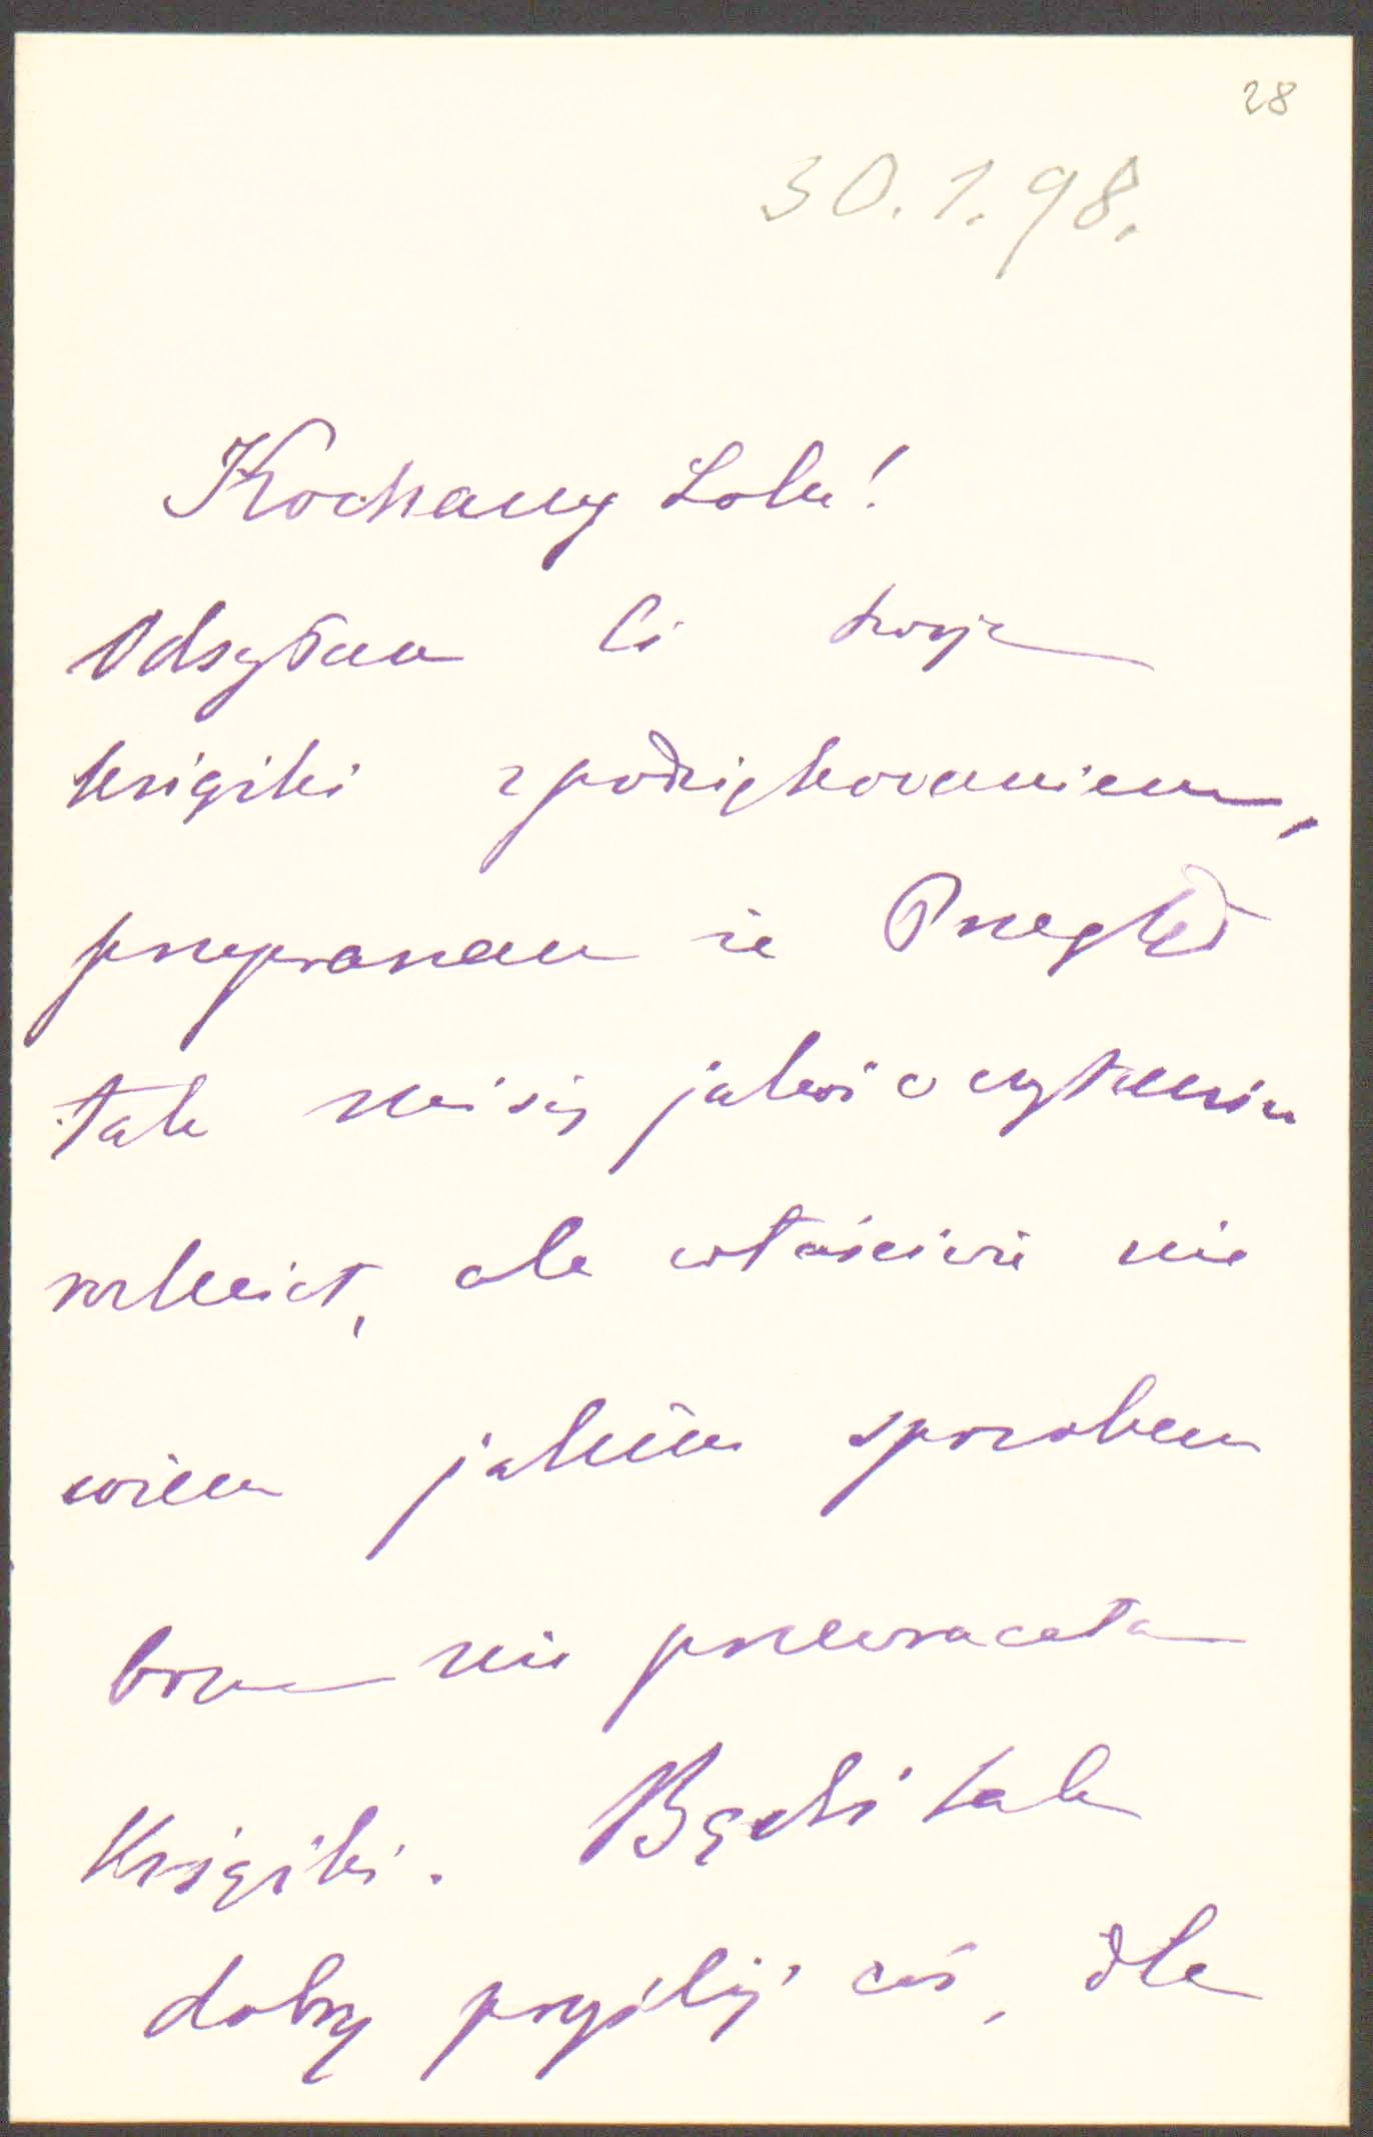 28
30.1.98.
Kochany Lolu!
Odsyłam Ci twoje
książki z podziękowaniem,
przepraszam że Przegląd
tak mi się jakoś w czytaniu
ale właściwie nie
wiem jakim sposobem
bom nie przewracała
Książki. Bądź tak
dobry przyślij coś, dla